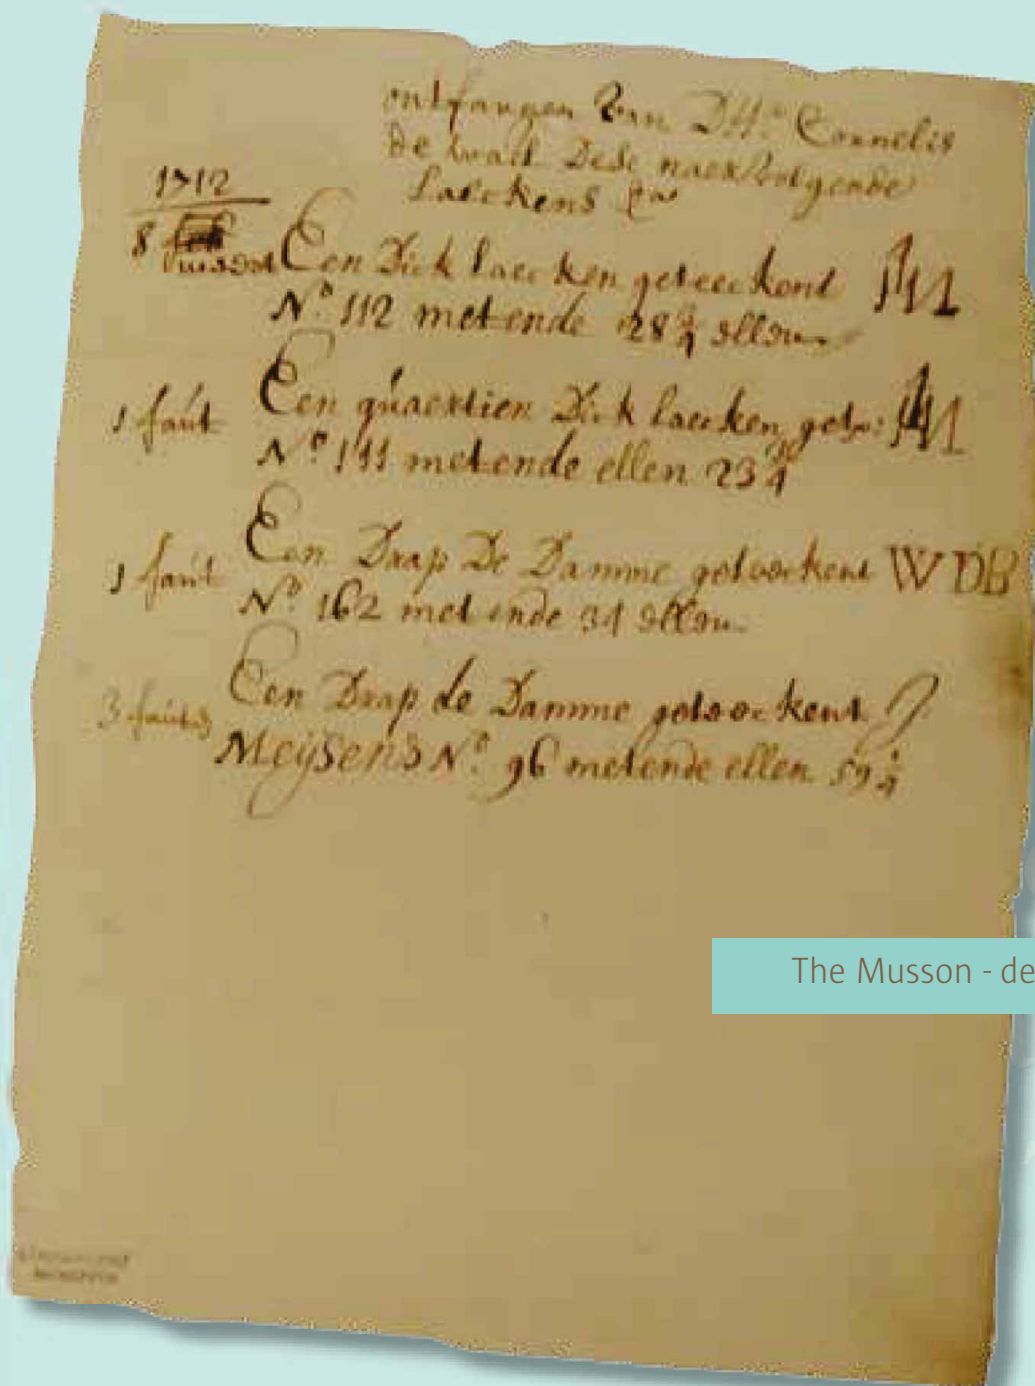 ontfangen van DHr. Cornelis
de wael dese naervolgende
Laeckens
1712
8
Een Dick laecken geteeckent
No 112 metende 28 3/4 ellen
1 faút Een quaertien Dick laecken
No 111 metende ellen 23 3/4
1 faút Een Drap De Damme geteeckent WDB
No 162 metende 34 ellen
3 faúts Een Drap de Damme geteeckent J.
Meijsens No 96 metende ellen 59 1/4
The Musson - de